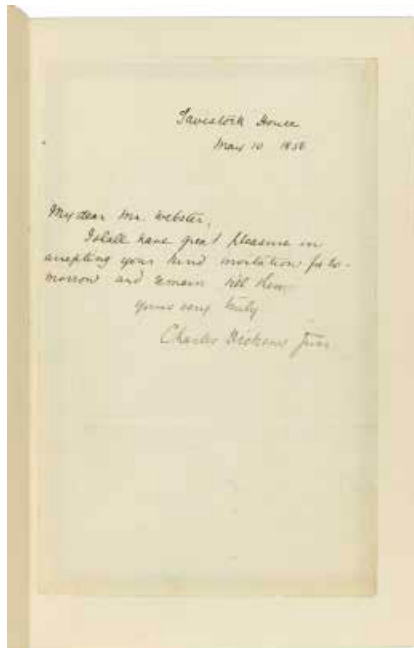 Tavistock House
May 10 1856
My dear Mr. Webster,
I shall have great pleasure in
accepting your kind invitation for to-
morrow and remain till then
yours very truly
Charles Dickens Junr